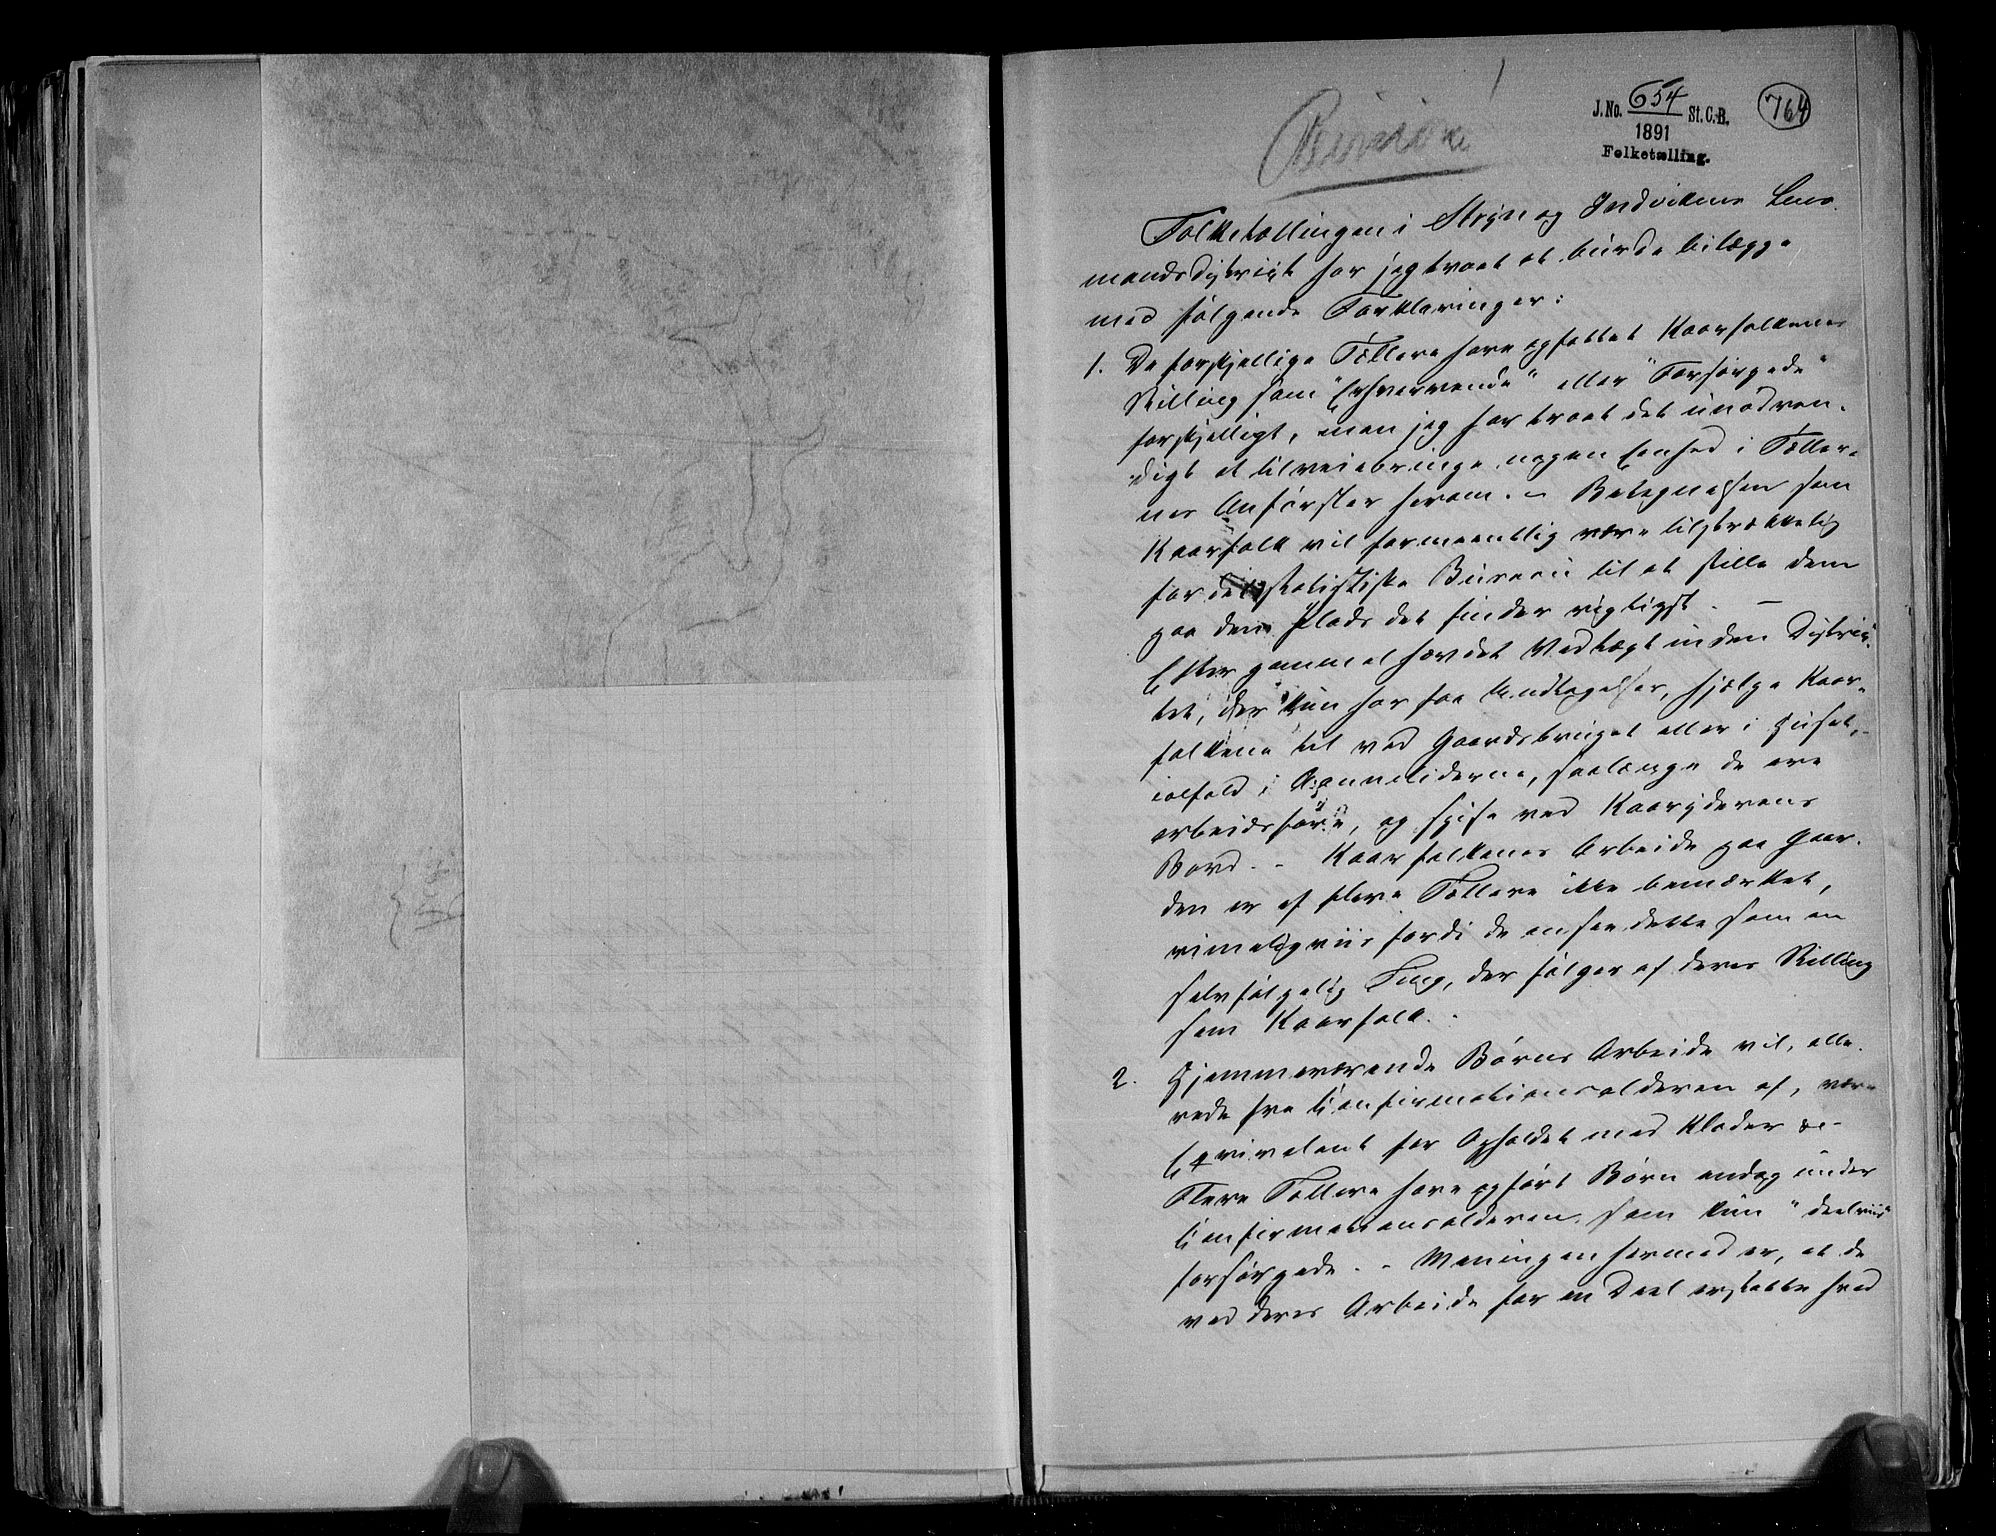 J. No. 654 St. C.-B. 764
1891
Folketælling.
Folketællingen i Stryn og Indvikens Lens-
mandsdistrikt har jeg troet at burde bilægge
med følgende Forklaringer:
1. De forskjellige Tællere have opfattet Kaarfolkenes
Stilling som "Erhvervende" eller "Forsørgede"
forskjelligt, men jeg har troet det unødven-
digt at tilveiebringe nogen Eenhed i Tæller-
nes Anførsler herom. – Betegnelsen som
Kaarfolk vil formeentlig være tilstrækkelig
for det statistiske Bureau til at stille dem
paa den Plads det finder rigtigst. –
Efter gammel hævdet Vedtægt inden Distrik-
tet, der kun har faa Undtagelser, hjælpe Kaar-
folkene til ved Gaardsbruget eller i Huset,
ialfald i Aannetiderne, saalænge de ere
arbeidsføre, og spise ved Kaaryderens
Bord. – Kaarfolkenes Arbeide paa Gaar-
den er af flere Tællere ikke bemærket,
rimeligviis fordi de ansee dette som en
selvfølgelig Ting, der følger af deres Stilling
som Kaarfolk. –
2. Hjemmeværende Børns Arbeide vil, alle-
rede fra Konfirmationsalderen af, være
Eqvivalent for Opholdet med Klæder &c –
Flere Tællere have opført Børn endog under
Konfirmationsalderen som kun "deelviis"
forsørgede. – Meningen hermed er, at de
ved deres Arbeide for en Deel erstatte hvad